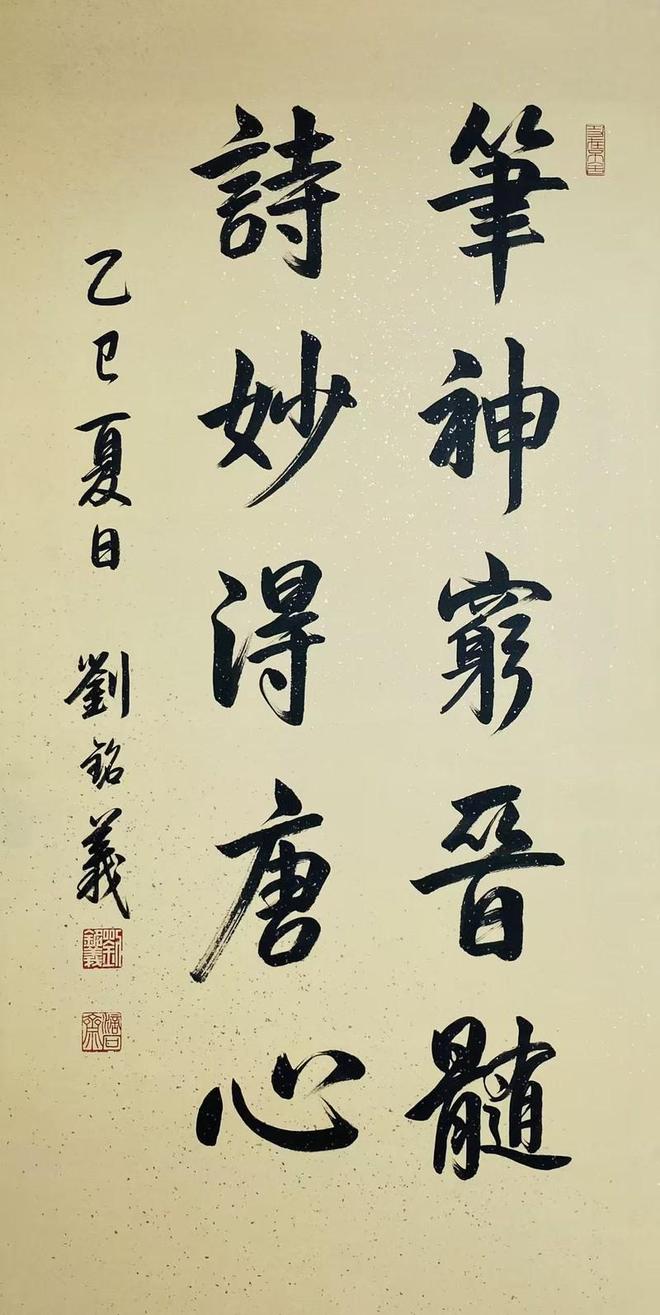 筆神窮晉髓
詩妙得唐心
乙巳夏日 劉銘義
劉銘義